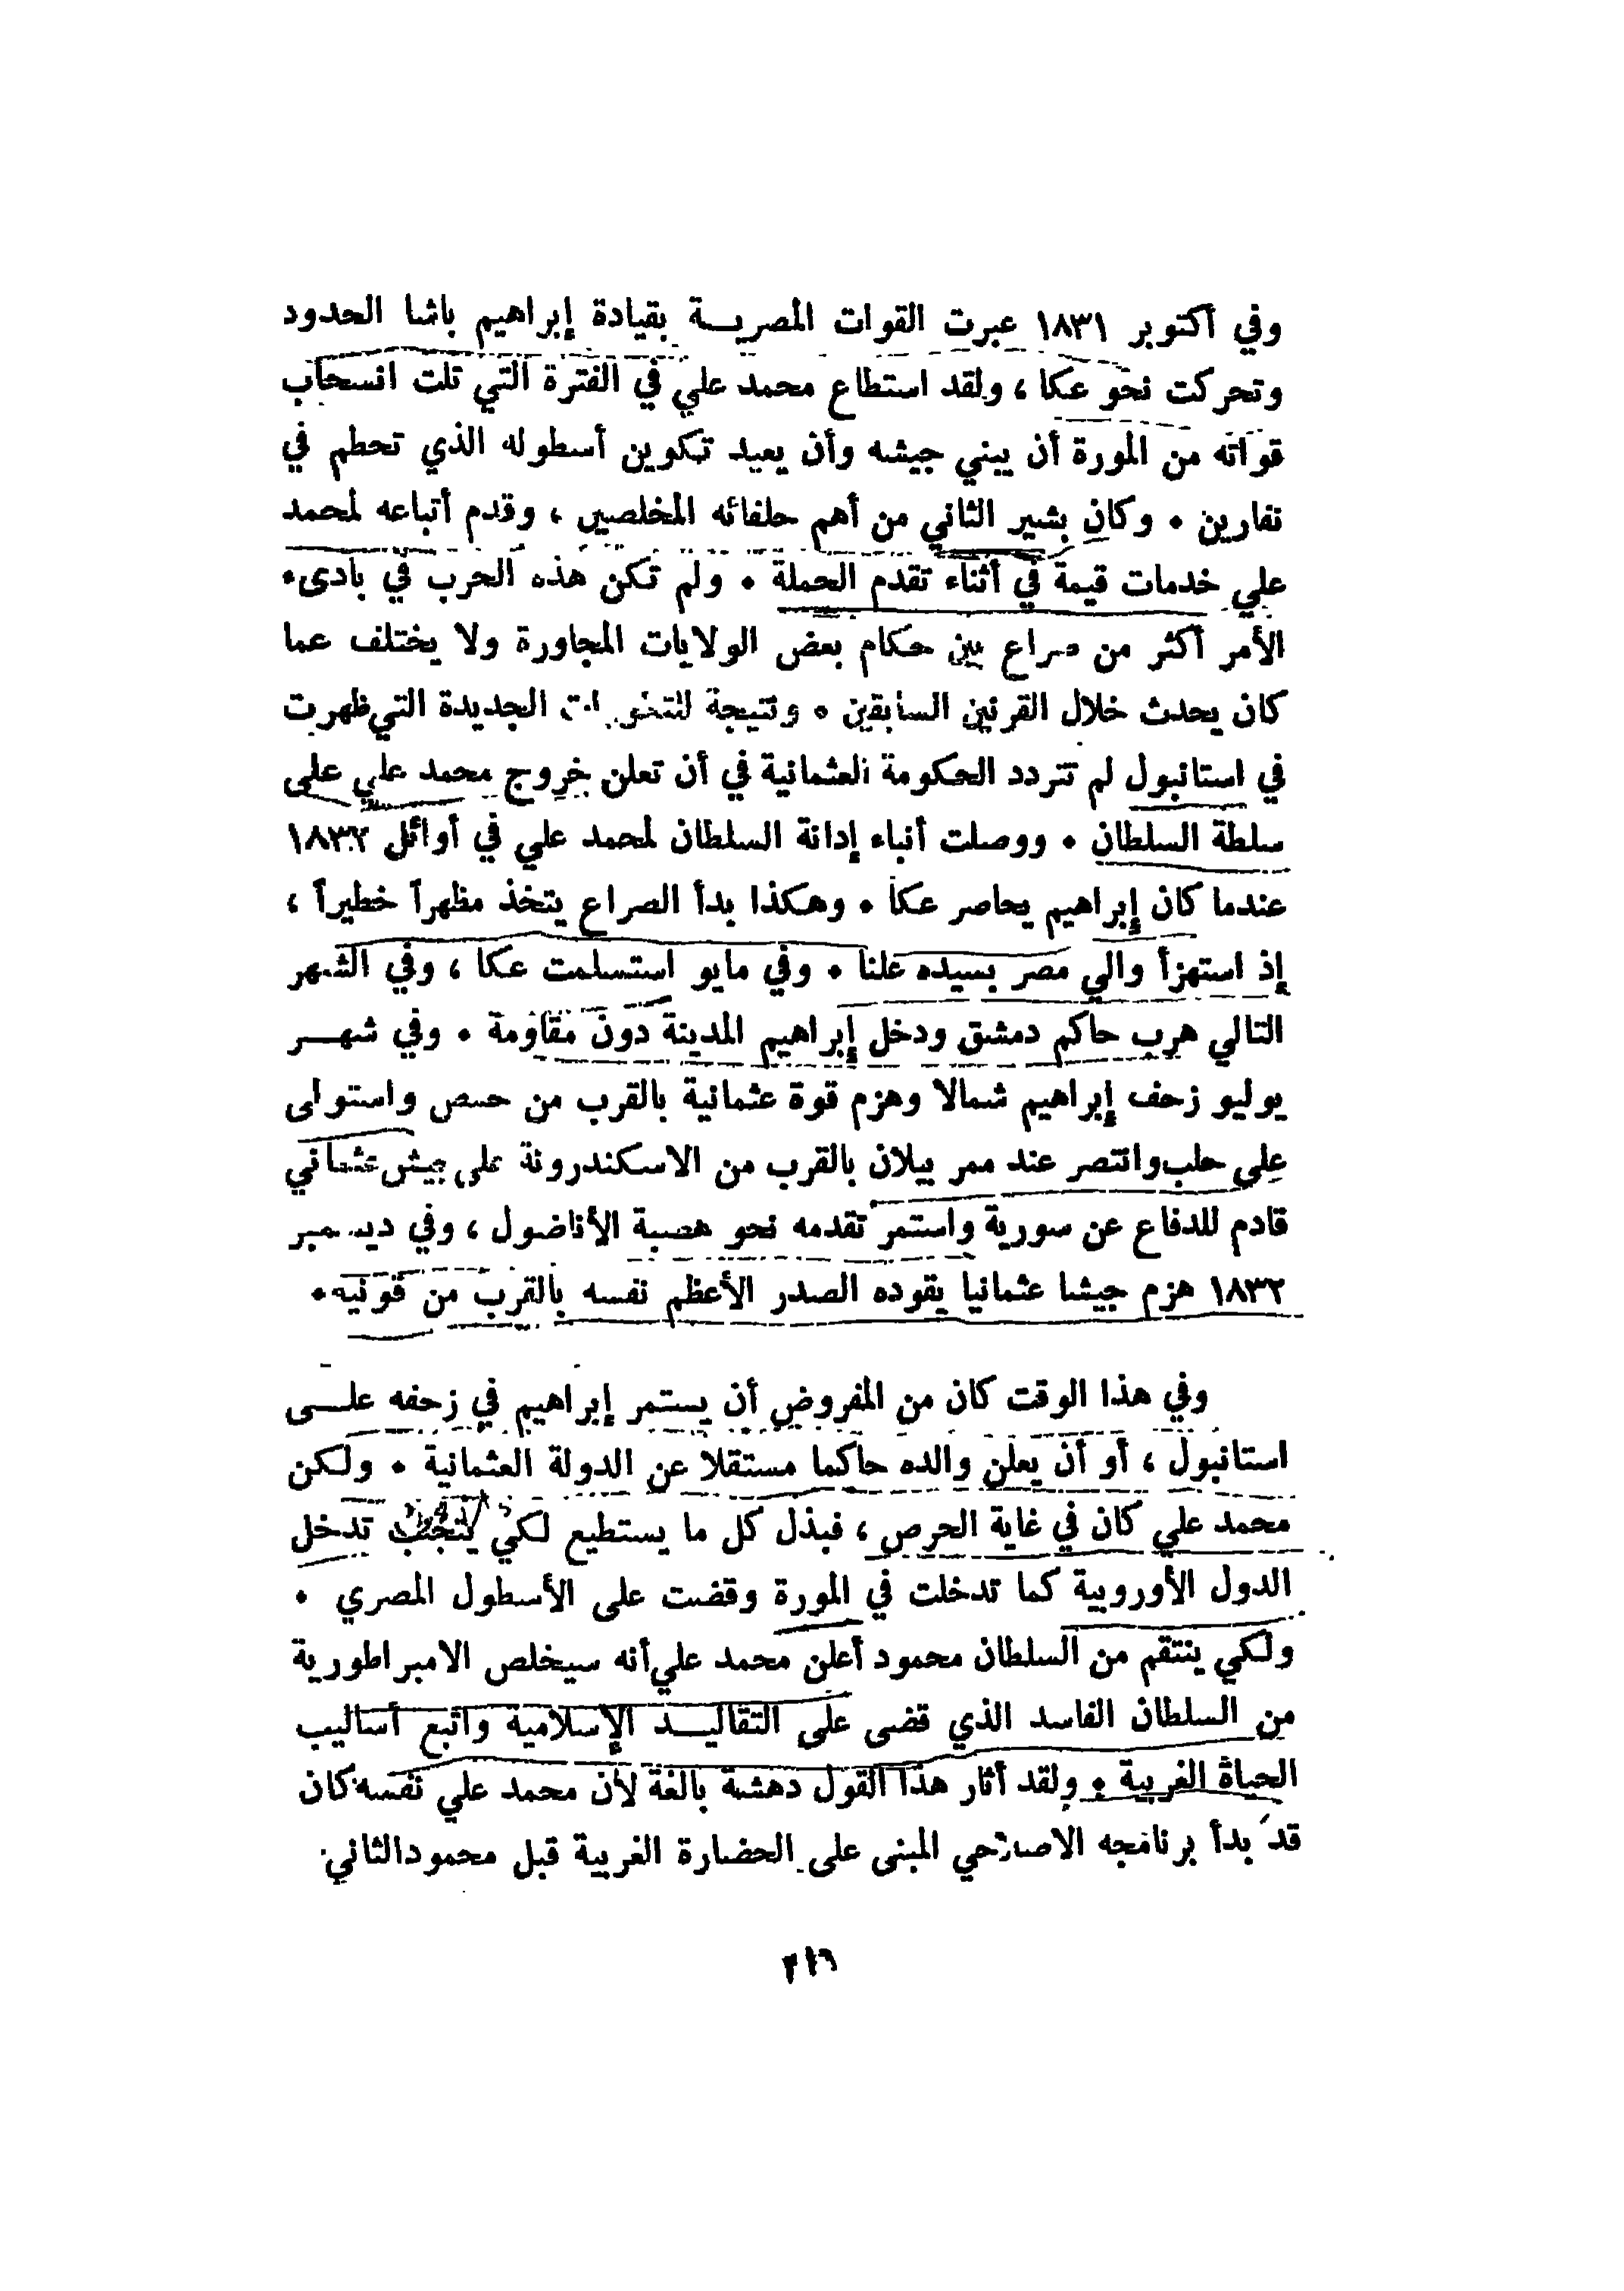 وفي أكتوبر ١٨٣١ عبرت القوات المصريـــة بقيادة إبراهيم باشا الحدود
وتحركت نحو عكا ، ولقد استطاع محمد علي في الفترة التي تلت انسحاب
قواته من المورة أن يبني جيشه وأن يعيد تكوين أسطوله الذي تحطم في
نفارين . وكان بشير الثاني من أهم حلفائه المخلصين ، وقدم أتباعه لمحمد
علي خدمات قيمة في أثناء تقدم الحملة . ولم تكن هذه الحرب في بادىء
الأمر أكثر من صراع بين حكام بعض الولايات المجاورة ولا يختلف عما
كان يحدث خلال القرنين السابقين . ونتيجة الجديدة التي ظهرت
في استانبول لم تتردد الحكومة العثمانية في أن تعلن خروج محمد علي على
سلطة السلطان . ووصلت أنباء إدانة السلطان لمحمد علي في أوائل ١٨٣٢
عندما كان إبراهيم يحاصر عكا . وهكذا بدأ الصراع يتخذ مظهراً خطيراً ،
إذ استهزأ والي مصر بسيده علنا . وفي مايو استسلمت عكا ، وفي الشهر
التالي هرب حاكم دمشق ودخل إبراهيم المدينة دون مقاومة . وفي شهـــر
يوليو زحف إبراهيم شمالا وهزم قوة عثمانية بالقرب من حمص واستولى
على حلب وانتصر عند ممر بيلان بالقرب من الاسكندرونة على جيش عثماني
قادم للدفاع عن سورية واستمر تقدمه نحو هضبة الأناضول ، وفي ديسمبر
١٨٣٢ هزم جيشا عثمانيا يقوده الصدر الأعظم نفسه بالقرب من قونيه .
وفي هذا الوقت كان من المفروض أن يستمر إبراهيم في زحفه علـــى
استانبول ، أو أن يعلن والده حاكما مستقلا عن الدولة العثمانية . ولكن
محمد علي كان في غاية الحرص ، فبذل كل ما يستطيع لكي يتجنب تدخل
الدول الأوروبية كما تدخلت في المورة وقضت على الأسطول المصري .
ولكي ينتقم من السلطان محمود أعلن محمد علي أنه سيخلص الامبراطورية
من السلطان الفاسد الذي قضى على التقاليـــد الإسلامية واتبع أساليب
الحياة الغربية . ولقد أثار هذا القول دهشة بالغة لأن محمد علي نفسه كان
قد بدأ برنامجه الاصلاحي المبنى على الحضارة الغربية قبل محمود الثاني
٢١٦